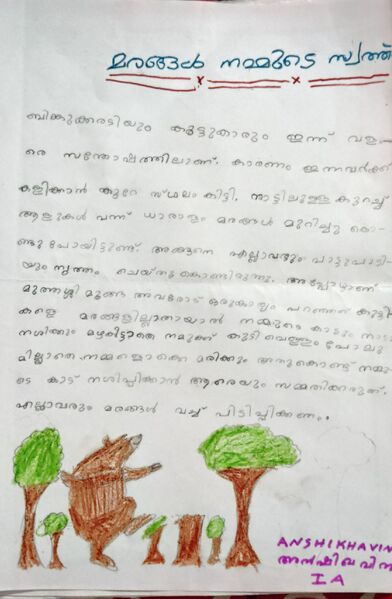 മരങ്ങൾ നമ്മുടെ സ്വത്ത്
ബിക്കുക്കരടിയും കൂട്ടുകാരും ഇന്ന് വള-
രെ സന്തോഷത്തിലാണ്. കാരണം ഇന്നവർക്ക്
കളിക്കാൻ കുറേ സ്ഥലം കിട്ടി. നാട്ടിലുള്ള കുറച്ച്
ആളുകൾ വന്ന് ധാരാളം മരങ്ങൾ മുറിച്ചു കൊ-
ണ്ടുപോയിട്ടുണ്ട് അങ്ങനെ എല്ലാവരും പാട്ടുപാടി-
യും നൃത്തം ചെയ്തുകൊണ്ടിരുന്നു. അപ്പോഴാണ്
മുത്തശ്ശി മൂങ്ങ അവരോട് ഒരുകാര്യം പറഞ്ഞത് കുട്ടി-
കളെ മരങ്ങളില്ലാതായാൽ നമ്മുടെ കാടും നാടും
നശിക്കും മഴകിട്ടാതെ നമുക്ക് കുടിവെള്ളം പോലു
മില്ലാതെ നമ്മളൊക്കെ മരിക്കും അതുകൊണ്ട് നമ്മു-
ടെ കാട് നശിപ്പിക്കാൻ ആരെയും സമ്മതിക്കരുത്.
എല്ലാവരും മരങ്ങൾ വച്ച് പിടിപ്പിക്കണം.
ANSHIKHAVIN
അൻഷിഖവിന
I A